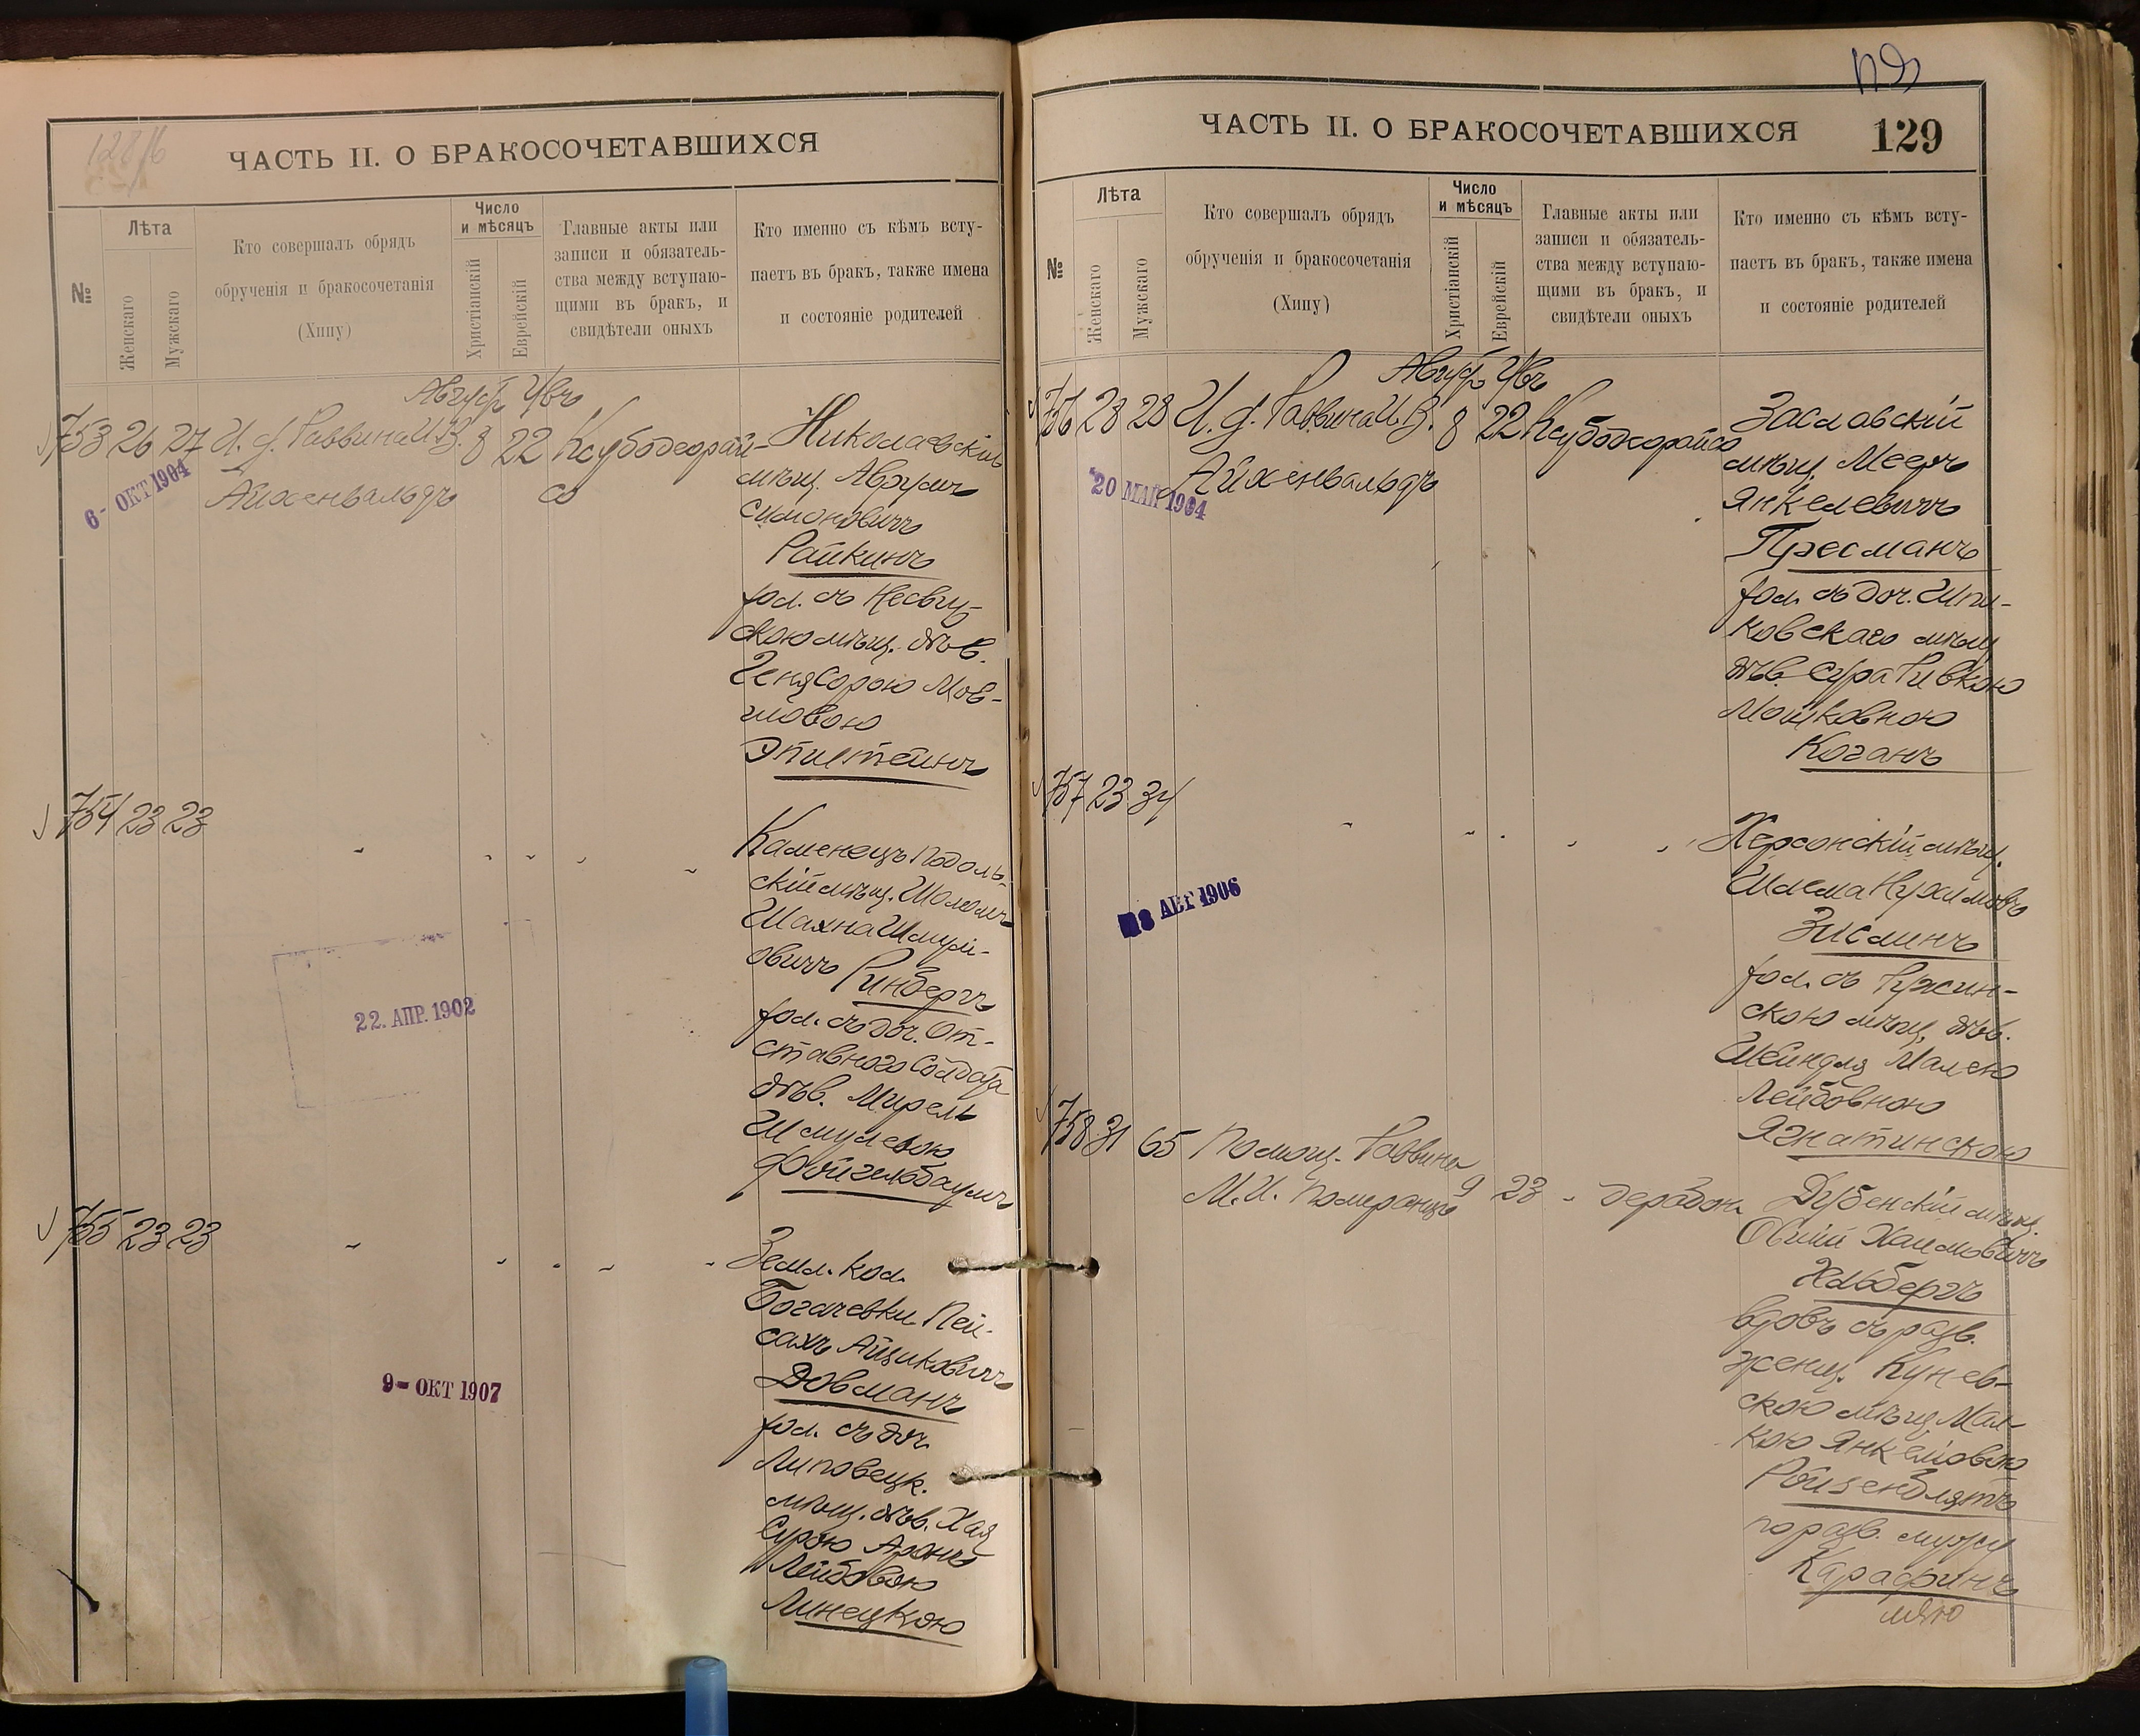 128/б
ЧАСТЬ II. О БРАКОСОЧЕТАВШИХСЯ
№
Лѣта
Женскаго
Мужскаго
Кто совершалъ обрядъ
обрученія и бракосочетанія
(Хипу)
Число
и мѣсяцъ
Христіанскій
Еврейскій
Главные акты или
записи и обязатель-
ства между вступаю-
щими въ бракъ, и
свидѣтели оныхъ
Кто именно съ кѣмъ всту-
паетъ въ бракъ, также имена
и состояніе родителей
Август
753 26 27 И. д. Раввина И. В. 8 22
Айхенвальдъ
6- ОКТ 1904
Николаевскій
мѣщ. Аврумъ
Симоновичъ
Райкинъ
хол. съ Несвиж-
скою мѣщ. дѣв.
Геня Сорою Мов-
шовою
Эпштейнъ
754 23 23
Каменецъ Подоль-
скій мѣщ. Шоломъ
Шахна Шмуй-
овичъ Ринбергъ
хол. съ доч. От-
ставного Солдата
дѣв. Мирель
Шмулевою
Фойгельбаумъ
22. АПР. 1902
755 23 23
Земл. кол.
Богачевки Пей-
сахъ Айзиковичъ
Довманъ
хол. съ доч.
Липовецк.
мѣщ. дѣв. Хая
Сурою Аронъ
Лейбовою
Линецкою
9- ОКТ 1907
ЧАСТЬ II. О БРАКОСОЧЕТАВШИХСЯ
129
№
Лѣта
Женскаго
Мужскаго
Кто совершалъ обрядъ
обрученія и бракосочетанія
(Хипу)
Число
и мѣсяцъ
Христіанскій
Еврейскій
Главные акты или
записи и обязатель-
ства между вступаю-
щими въ бракъ, и
свидѣтели оныхъ
Кто именно съ кѣмъ всту-
паетъ въ бракъ, также имена
и состояніе родителей
Август
756 23 28 И. д. Раввина И. В. 8 22
Айхенвальдъ
20 МАЙ 1904
Заславскій
мѣщ. Мееръ
Янкелевичъ
Пресманъ
хол. съ доч. Шпи-
ковскаго мѣщ
дѣв. Сура Ривкою
Мошковною
Коганъ
757 23 34
Херсонскій мѣщ.
Шлема Нухимовъ
Зислинъ
хол. съ Ружин-
скою мѣщ. дѣв.
Шейндля Малею
Лейбовною
Ягнатинскою
8 АВГ 1906
758 31 65 Помощ. Раввина
М. И. Померанцъ 9 23
Дубенскій мѣщ.
Овшій Хаимовичъ
Хальбергъ
вдовъ съ разв.
женщ. Кунев-
скою мѣщ. Мал-
кою Янкелевою
Ройзенблятъ
по разв. мужу
Карафинъ